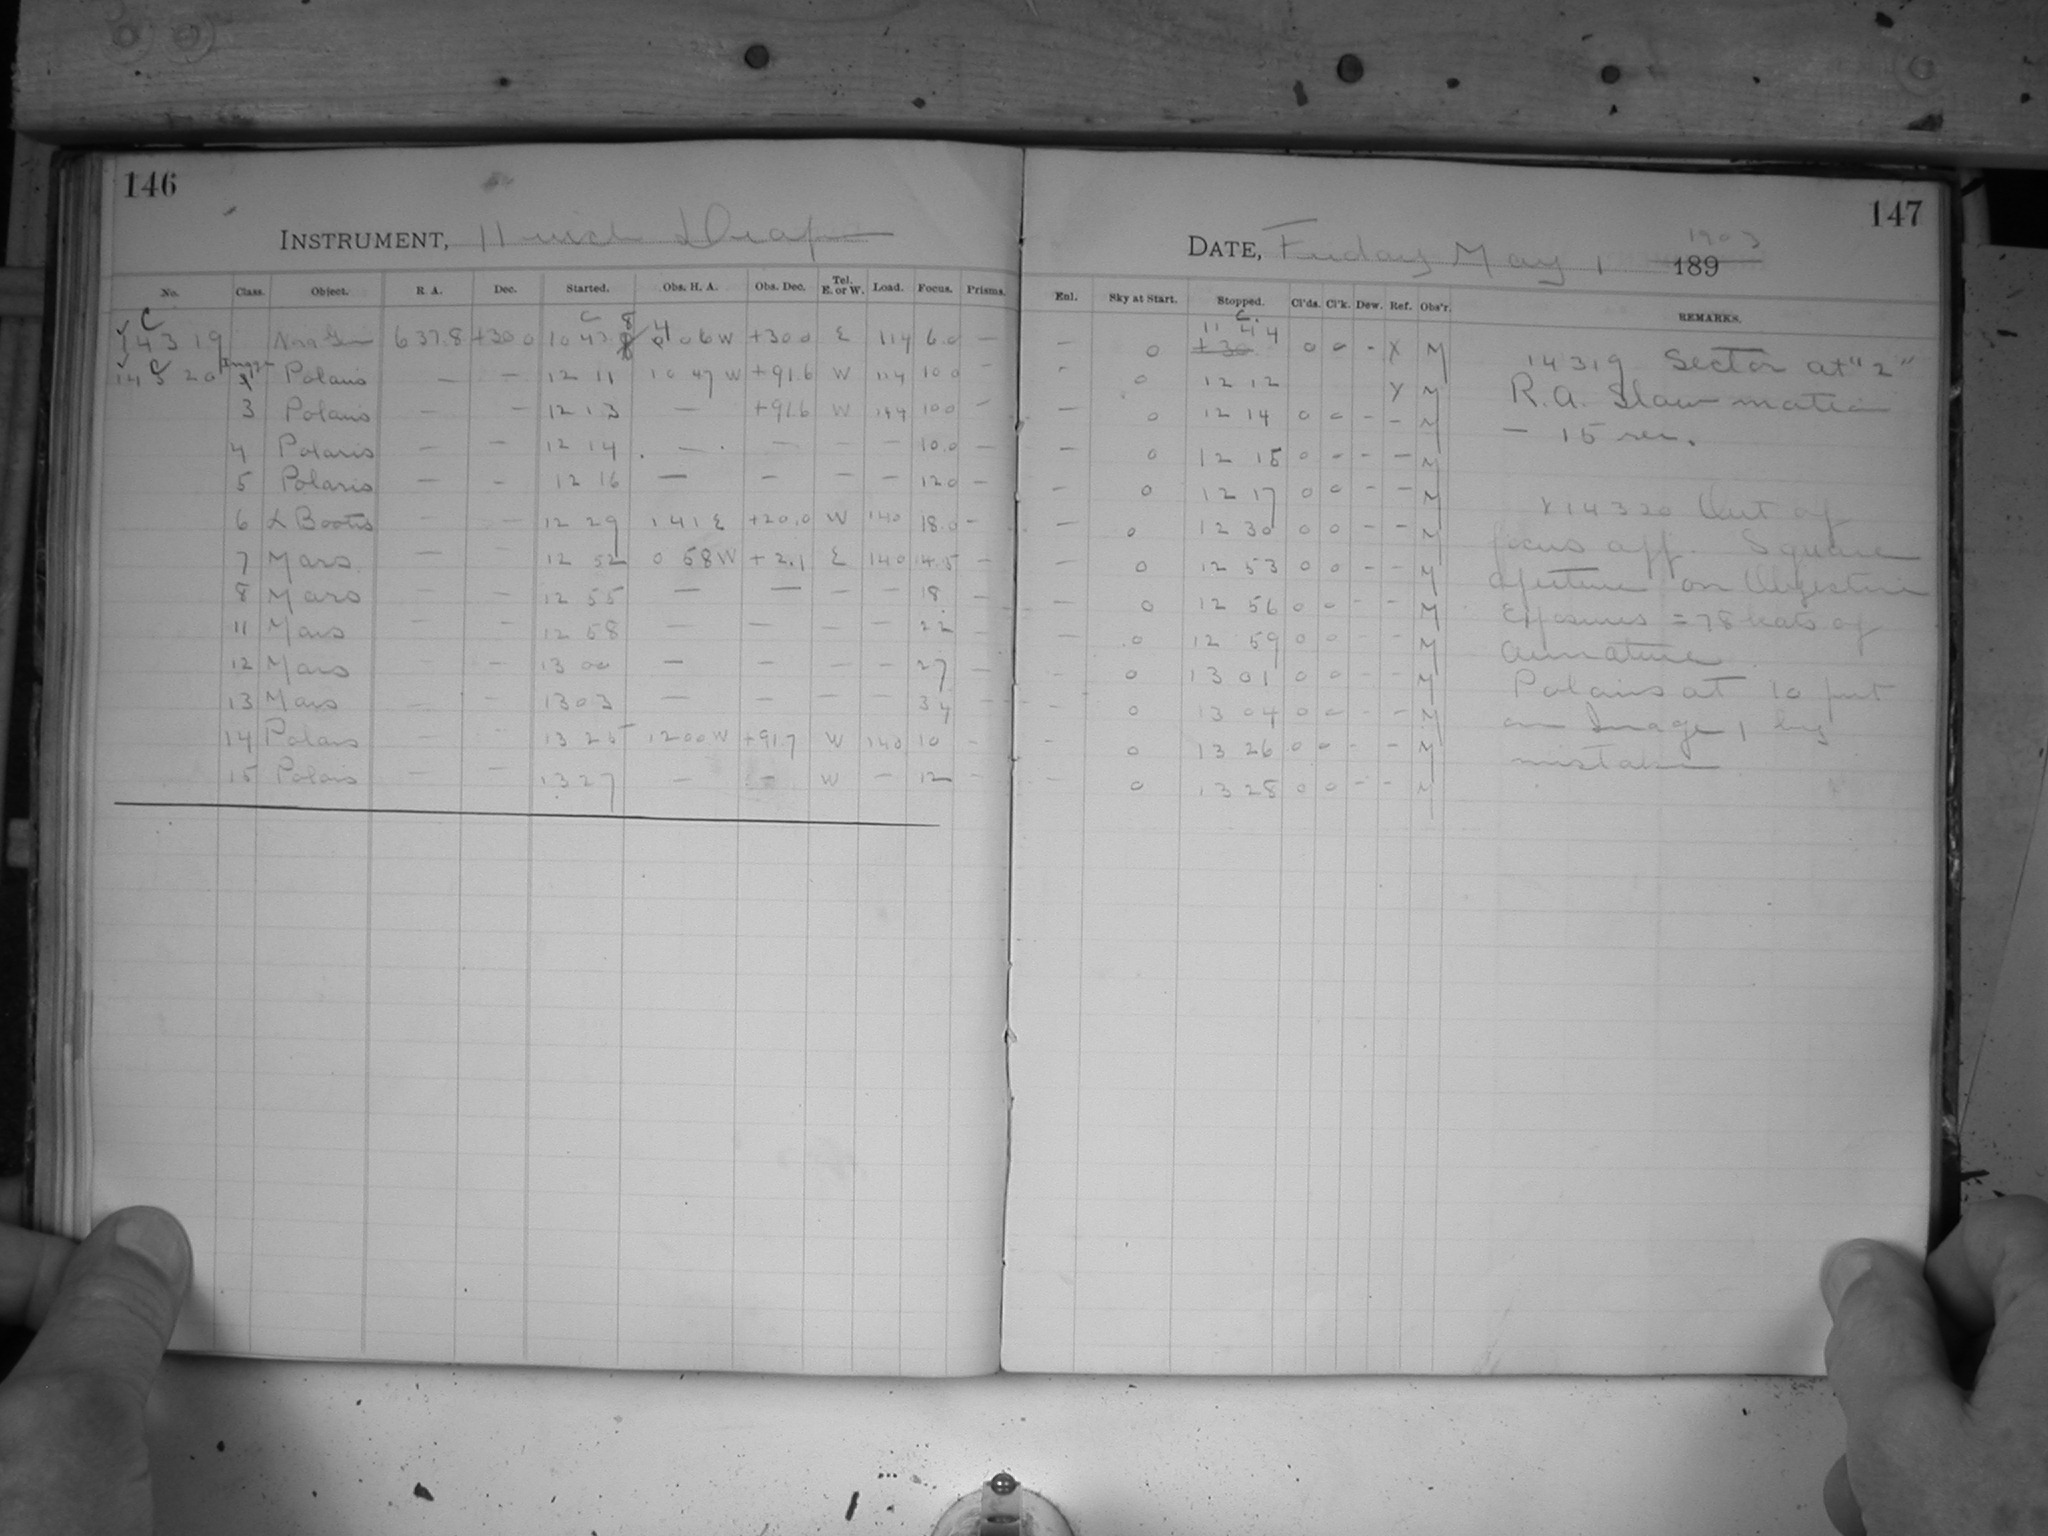 146
INSTRUMENT, 11 inch Draper
No. Class. Object. R. A. Dec. Started. Obs. H. A. Obs. Dec. Tel. E. or W. Load. Focus. Prisms.
C 14319 Nova Gem 6 37.8 +30 0 10 43 8 4 06 W +30.0 E 114 6.0 —
C 14320 Image 1 Polaris — — 12 11 10 47 W +91.6 W 114 10.0 —
3 Polaris — — 12 13 — +91.6 W 144 10.0 —
4 Polaris — — 12 14 — — — — 10.0 —
5 Polaris — — 12 16 — — — — 12.0 —
6 α Bootis — — 12 29 1 41 E +20.0 W 140 18.0 —
7 Mars — — 12 52 0 58 W +2.1 E 140 14.5 —
8 Mars — — 12 55 — — — — 18 —
11 Mars — — 12 58 — — — — 22 —
12 Mars — — 13 00 — — — — 27 —
13 Mars — — 13 03 — — — — 34 —
14 Polaris — — 13 25 12 00 W +91.7 W 140 10 —
15 Polaris — — 13 27 — — W — 12 —
147
DATE, Friday May 1 1903
189
Enl. Sky at Start. Stopped. Cl'ds. Cl'k. Dew. Ref. Obs'r. REMARKS.
— 0 11 44 0 0 - X M
— 0 12 12 X M
— 0 12 14 0 0 - - M
— 0 12 15 0 0 - - M
— 0 12 17 0 0 - - M
— 0 12 30 0 0 - - M
— 0 12 53 0 0 - - M
— 0 12 56 0 0 - - M
— 0 12 59 0 0 - - M
— 0 13 01 0 0 - - M
— 0 13 04 0 0 - - M
— 0 13 26 0 0 - - M
— 0 13 28 0 0 - - M
14319 Sector at "2"
R.A. Slow motion
— 15 sec.
X 14320 Out of
focus app. Square
aperture on Objective
Exposures = 78 beats of
armature
Polaris at 10 put
on Image 1 by
mistake